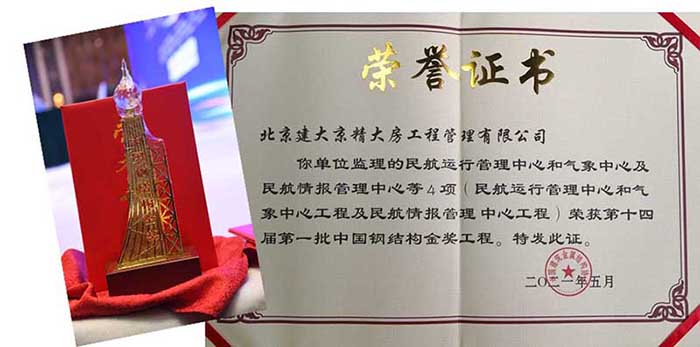 荣誉证书
北京建大京精大房工程管理有限公司
你单位监理的民航运行管理中心和气象中心及
民航情报管理中心等4项（民航运行管理中心和
气象中心工程及民航情报管理中心工程）荣获第十四
届第一批中国钢结构金奖工程。特发此证。
二〇二一年五月